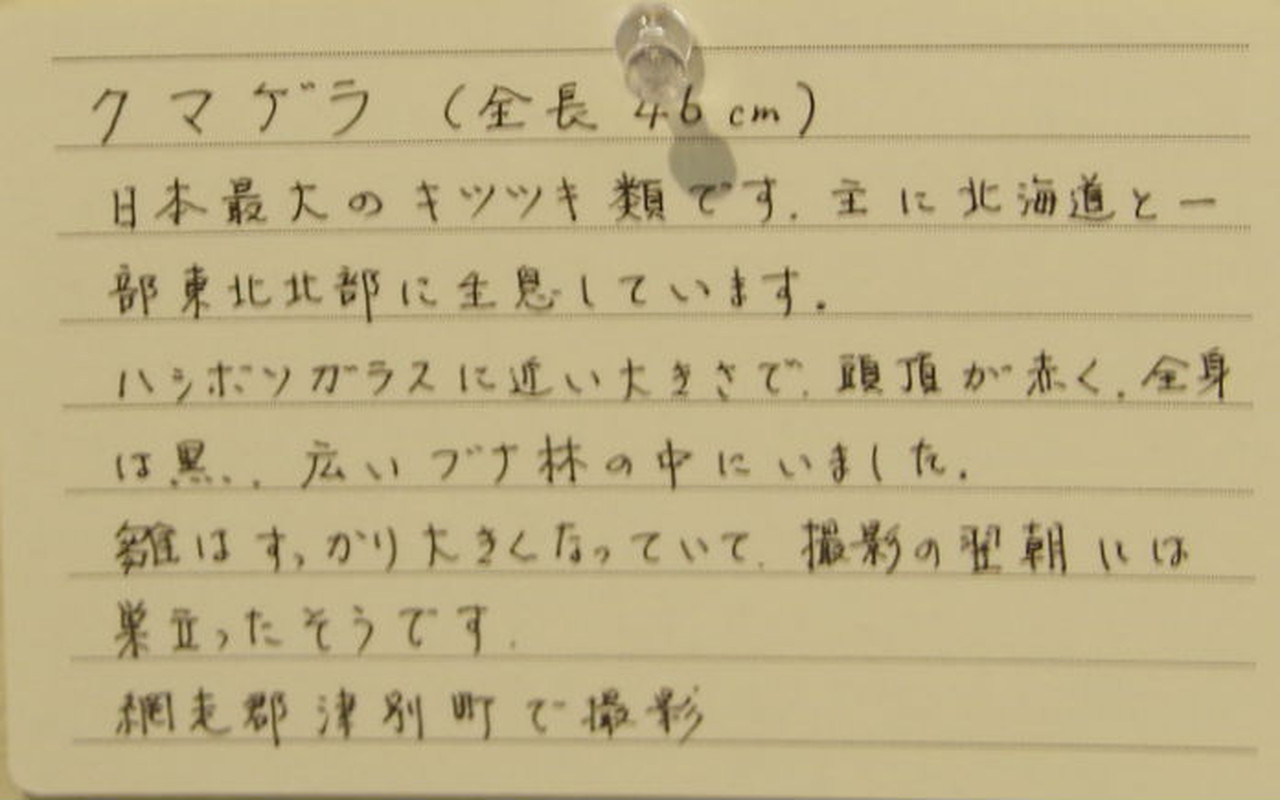 クマゲラ（全長 46cm）
日本最大のキツツキ類です。主に北海道と一
部東北北部に生息しています。
ハシボソガラスに近い大きさで、頭頂が赤く、全身
は黒、、広いブナ林の中にいました。
雛はすっかり大きくなっていて、撮影の翌朝には
巣立ったそうです。
網走郡津別町で撮影